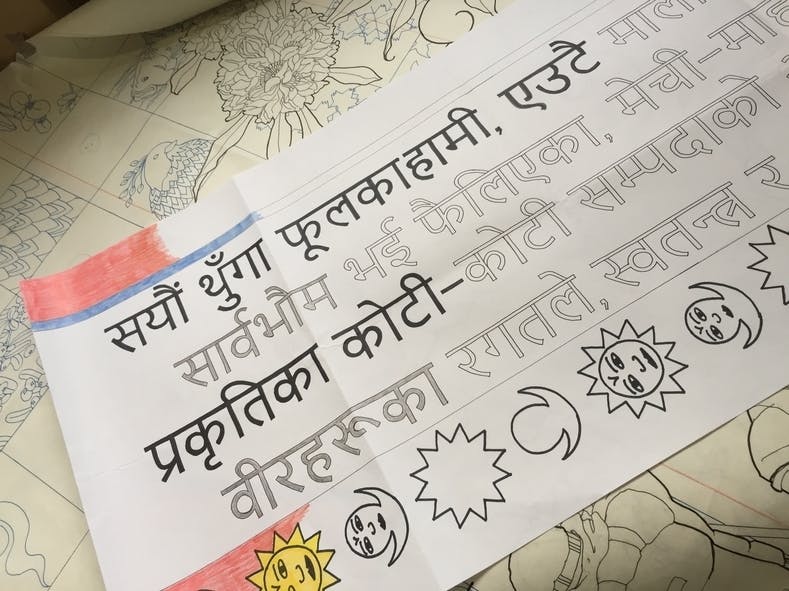 सयौं थुँगा फूलकाहामी, एउटै माला
सार्वभौम भई फैलिएका, मेची-माह
प्रकृतिका कोटी-कोटी सम्पदाको
वीरहरूका रगतले, स्वतन्त्र र